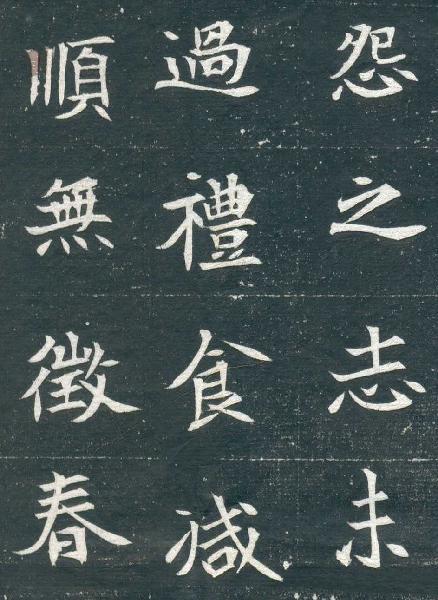 怨之志未
過禮食減
順無徵春